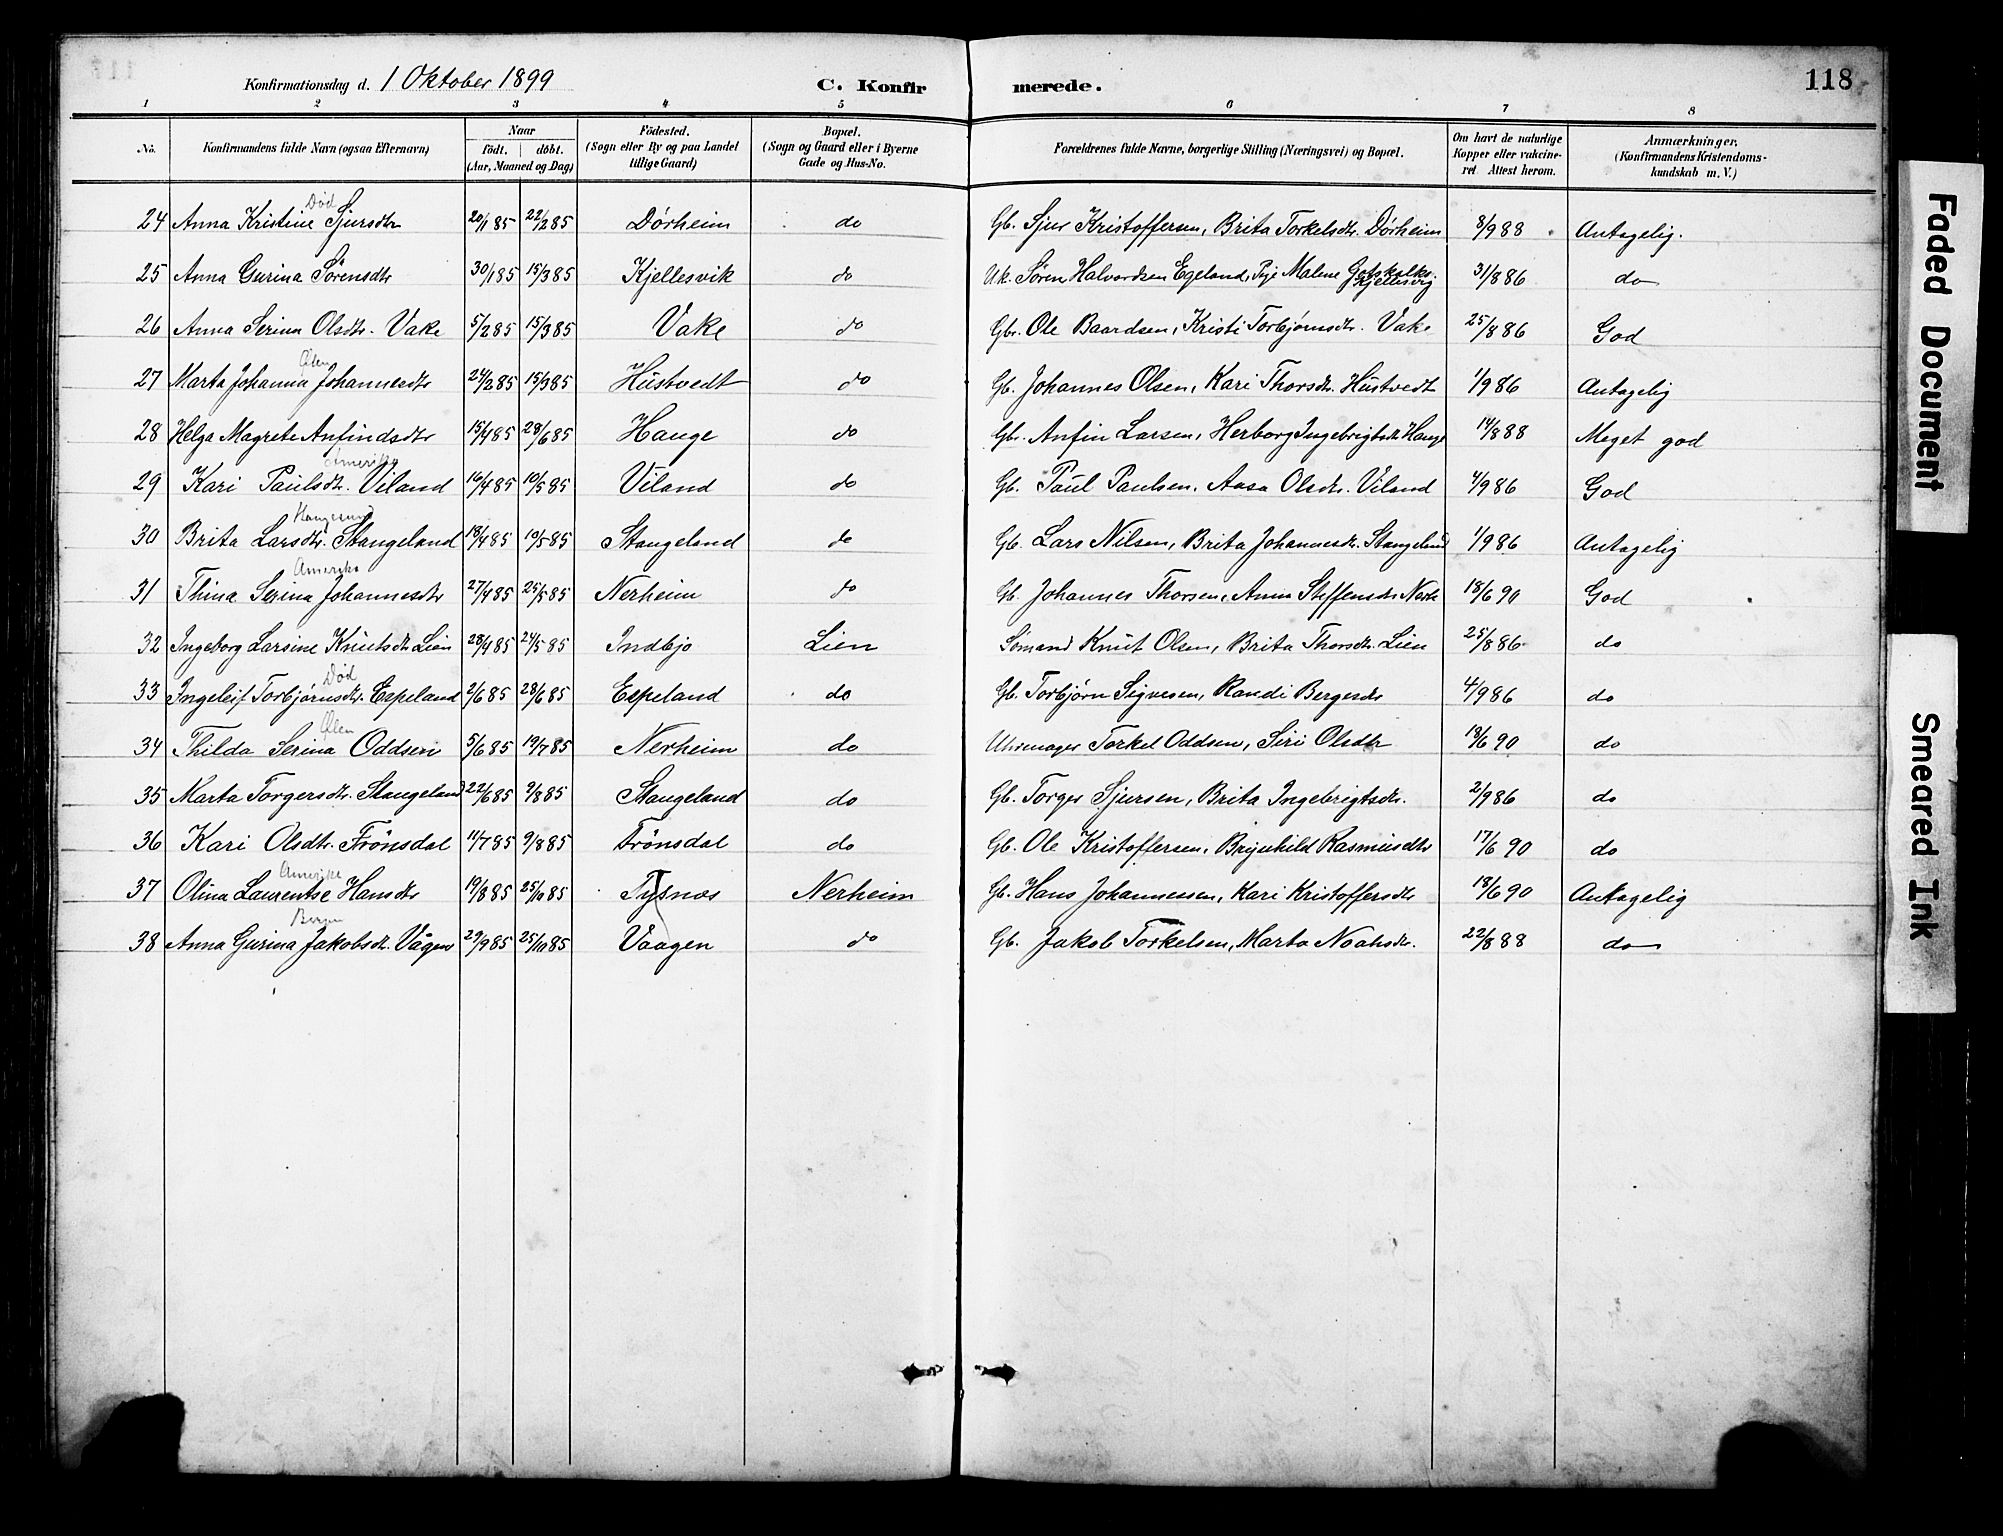 Konfirmationsdag d. 1 Oktober 1899 C. Konfirmerede. 118
1 2 3 4 5 6 7 8
No. Konfirmandens fulde Navn (ogsaa Efternavn) Naar födt. döbt. (Aar, Maaned og Dag) Födested. (Sogn eller By og paa Landet tillige Gaard) Bopæl. (Sogn og Gaard eller i Byerne Gade og Hus-No. Forældrenes fulde Navne, borgerlige Stilling (Næringsvei) og Bopæl. Om havt de naturlige Kopper eller vakcineret. Attest herom. Anmærkninger. (Konfirmandens Kristendomskundskab m. V.)
Död
24 Anna Kristine Sjursdtr 20/1 85 22/2 85 Dörheim do Gb. Sjur Kristoffersen, Brita Torkelsdtr. Dörheim 8/9 88 Antagelig.
25 Anna Gurina Sörensdtr 30/1 85 15/3 85 Kjellesvik do Uk. Sören Halvordsen Egeland, Malene Kjellesvig 31/8 86 do
26 Anna Serina Olsdtr. Vake 5/2 85 15/3 85 Vake do Gbr. Ole Baardsen, Kristi Torbjörnsdtr. Vake 25/8 86 God
Ölen
27 Marta Johanna Johannesdtr 24/2 85 15/3 85 Hustvedt do Gb. Johannes Olsen, Kari Thorsdtr. Hustvedt 1/9 86 Antagelig
28 Helga Magrete Anfindsdtr 15/4 85 28/6 85 Hauge do Gbr. Anfin Larsen, Herborg Ingebrigtsdtr Hauge 14/8 88 Meget god
Amerika
29 Kari Paulsdtr. Viland 16/4 85 10/5 85 Viland do Gb. Paul Paulsen, Aasa Olsdtr. Viland 4/9 86 God
Haugesund
30 Brita Larsdtr. Stangeland 18/4 85 10/5 85 Stangeland do Gb. Lars Nilsen, Brita Johannesdtr. Stangeland 1/9 86 Antagelig
Amerika
31 Thina Serina Johannesdtr 27/4 85 25/5 85 Nerheim do Gb. Johannes Thorsen, Anna Steffensdtr Nerh 18/6 90 God
32 Ingeborg Larsine Knutsdtr Lien 28/4 85 24/5 85 Indbjo Lien Sömand Knut Olsen, Brita Thorsdtr. Lien 25/8 86 do
Död
33 Ingeleif Torbjörnsdtr. Espeland 2/6 85 28/6 85 Espeland do Gb. Torbjörn Sigvesen, Randi Bergesdtr 4/9 86 do
Ölen
34 Thilda Serina Oddsen 5/6 85 19/7 85 Nerheim do Uhrmager Torkel Oddsen, Siri Olsdtr 18/6 90 do
35 Marta Torgersdtr. Stangeland 22/6 85 9/8 85 Stangeland do Gb. Torger Sjursen, Brita Ingebrigtsdtr. 2/9 86 do
36 Kari Olsdtr. Frönsdal 11/7 85 9/8 85 Frönsdal do Gb. Ole Kristoffersen, Brynhild Rasmusdtr 17/6 90 do
Amerika
37 Olina Laurentse Hansdtr 19/8 85 25/10 85 Tysnæs Nerheim Gb. Hans Johannesen, Kari Kristoffersdtr 18/6 90 Antagelig
Bergen
38 Anna Gurina Jakobsdtr. Vågen 29/9 85 25/10 85 Vaagen do Gb. Jakob Torkelsen, Marta Noahsdtr. 22/8 88 do
Faded Document
Smeared Ink